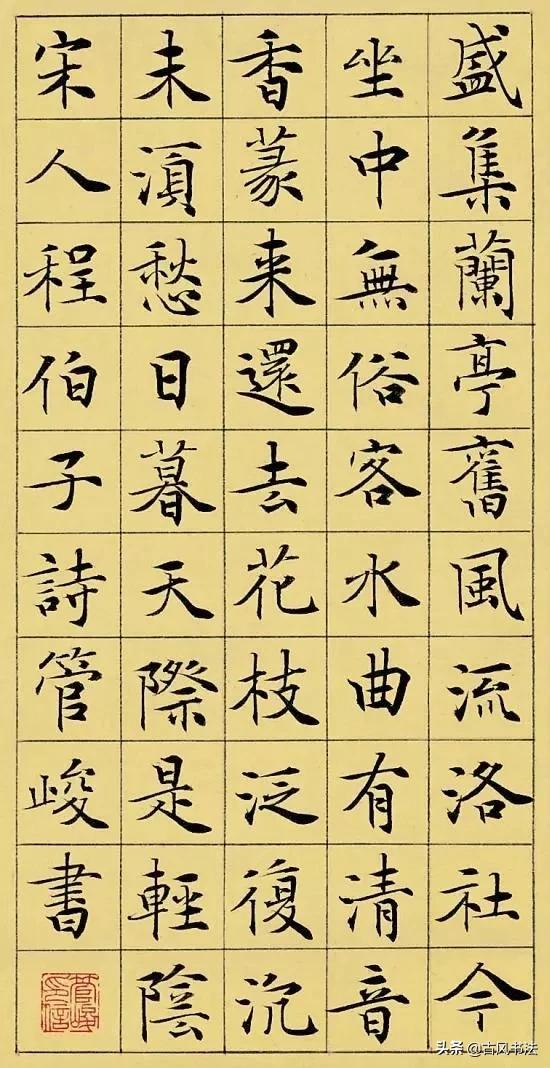 盛集蘭亭舊風流洛社今
坐中無俗客水曲有清音
香篆来還去花枝泛復沉
未湏愁日暮天際是輕陰
宋人程伯子詩管峻書
管峻印信
头条 @古风书法